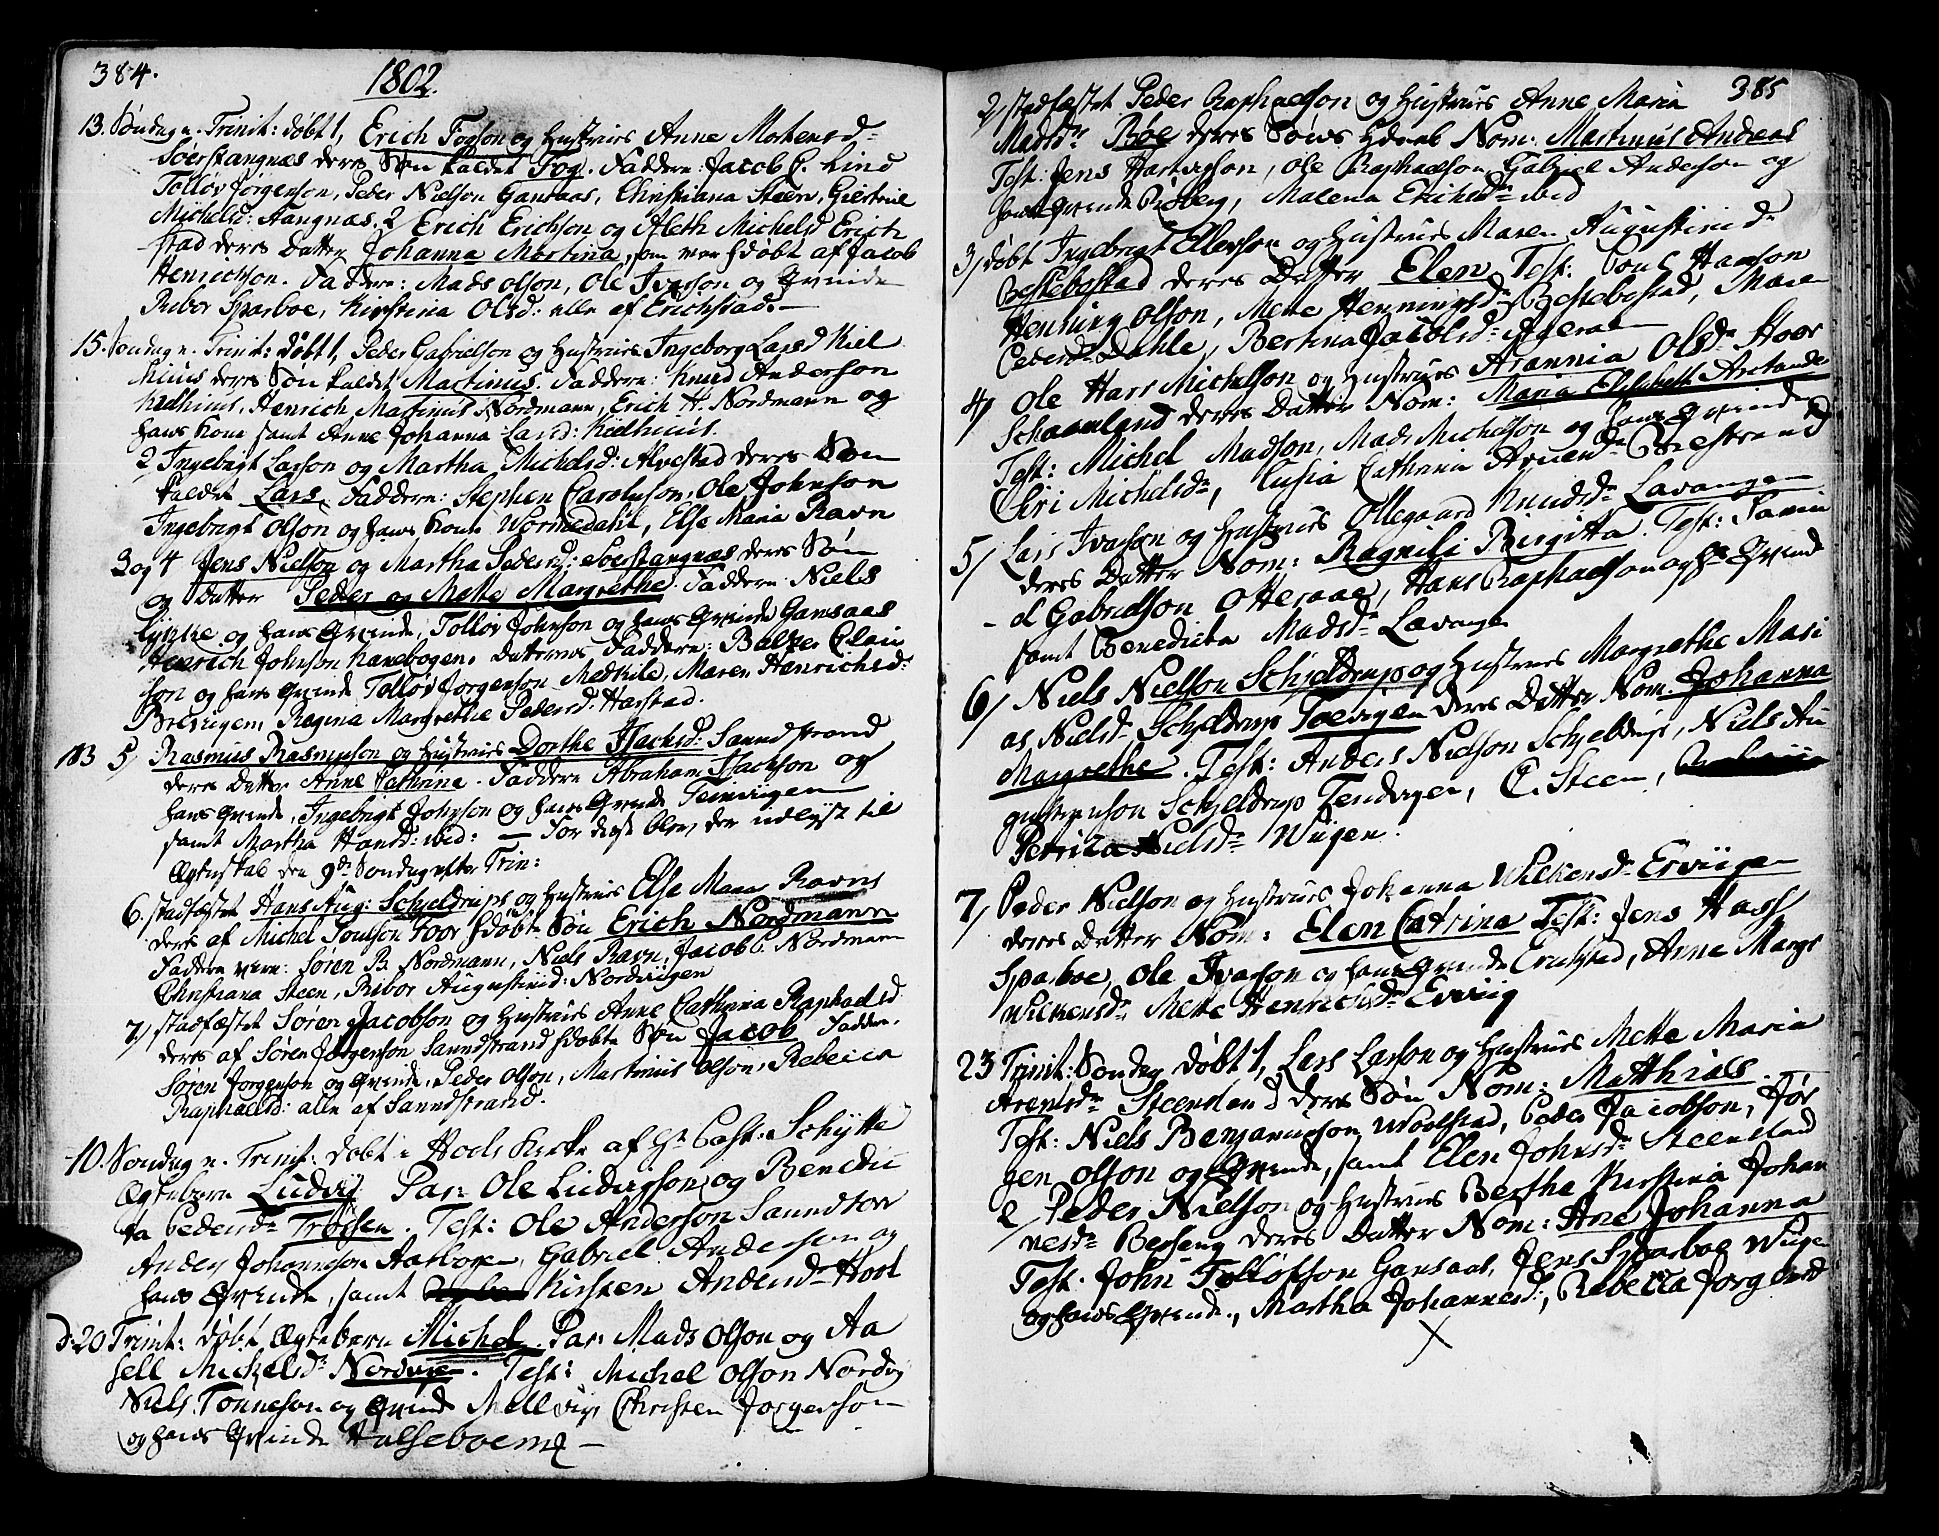 384.
1802.
13. Søndag n. Trinit: døbt 1, Erich Fogson og Hustrues Anne Mortensd:
Sørstangnæs deres Søn kaldet Fog. Faddere: Jacob C. Lind
Tolløv Jørgenson, Peder Nielson Gansaas, Christiana Steen, Giertrue
Michelsd: Tangnæs. 2/ Erich Erichson og Aleth Michelsd Erich
stad deres Datter Johanna Martina, som var hdøbt af Jacob
Henrichson. Faddere: Mads Olson, Ole Ivarson og Qvinde
Ribor Sparboe, Kirstina Olsd: alle af Erichstad. —
15. Søndag n. Trinit: døbt 1, Peder Gabrielson og Hustrues Ingeborg Larsd Kiel
hiuus deres Søn kaldet Martinus. Faddere: Knud Anderson
Kielhiuus, Henrich Martinus Nordmann, Erich H. Nordmann og
hans Kone samt Anne Johanna Larsd: Kielhiuus.
2 Ingebrigt Larson og Martha Michelsd: Alvestad deres Søn
kaldet Lars. Faddere: Stephen Caroluson, Ole Johnson
Ingebrigt Olson og hans Kone Wormedahl, Else Maria Ravn
3 og 4 Jens Nielson og Martha Pedersd: Sørstangnæs deres Søn
og Datter Peder og Mette Margrethe. Faddere: Niels
Lykke og hans Qvinde, Tolløv Johnson og hans Qvinde Gansaas
Henrich Johnson Kanebogen. Datterens Faddere: Balzer Elia
son og hans Qvinde Tolløv Jørgenson Medkile, Maren Henrichsd:
Brevigen, Regina Margrethe Pedersd. Harstad.
NB 5/ Rasmus Rasmuson og Hustrues Dorthe Isachsd: Sanndstrand
deres Datter Anne Cathrine. Faddere Abraham Isachson og
hans Qvinde, Ingebrigt Johnson og hans Qvinde Tennvigen
samt Martha Hansd: ibid: — For disse blev der udlyst til
Ægteskab den 9de Søndag efter Trin:
6. stadfæstet Hans Aug: Schjeldrups og Hustrues Else Maria Ravns
deres af Michel Tomson Foor hdøbte Søn Erich Nordmann
Faddere vare: Søren B. Nordmann, Niels Ravn, Jacob C. Nordmann
Christiana Steen, Ribor Augustinid: Nordviigen
7/ stadfæstet Søren Jacobson og Hustrues Anne Cathrina Raphaelsd
deres af Søren Jørgenson Sanndstrand hdøbte Søn Jacob Faddere.
Søren Jørgenson og Qvinde, Peder Olson, Martinus Olson, Rebecca
Raphaelsd: alle af Sanndstrand.
10. Søndag n. Trinit: døbt i Hols Kirke af Hr Past: Schytte
Ægtebarn Ludvig Par: Ole Ludvigson og Benedic
ta Pedersdr Trøssen. Test: Ole Anderson Sanndtorv
Anders Johannson Aasbogen, Gabriel Anderson og
hans Qvinde, samt Kirsten Andersdr Hool
D. 20 Trinit: døbt, Ægtebarn Michel. Par: Mads Olson og Aa
sell Michelsdr Nordvig. Test: Michel Olson Nordvig
Niels Tønneson og Qvinde Mellvig, Christen Jørgenson
og hans Qvinde Halseboeng —
385
2/ stadfæstet Peder Raphaelson og Hustrues Anne Maria
Madsdr Bøe deres Søns Hdaab Nom: Martinus Andreas
Test: Jens Hartvigson, Ole Raphaelson Gabriel Anderson og
hans Qvinde Røberg, Malena Erichsdr ibid
3/ døbt Ingebrigt Ellefson og Hustrues Maren Augustinid:
Beskebostad deres Datter Elen Test: Poul Hanson
Henning Olson, Mette Henningsdr Beskebostad, Maren
Pedersdr Dahle, Bertina Jacobsdr
4/ Ole Hans Michelson og Hustrues Arannia Olsdr Hoor
Schaanland deres Datter Nom: Maria Elisabeth Arctander
Test: Michel Madson, Mads Michelson og hans Qvinde
Siri Michelsdr, Lusia Cathrina
5/ Lars Ivarson og Hustrues Ollegaard Knudsdr Lavangen
deres Datter Nom: Ragnili Birgitta. Test: Dani
el Gabrielson Otteraae, Hans Raphaelson og hs Qvinde
samt Benedicta Madsdr Lavangen
6/ Niels Nielson Schjeldrups og Hustrues Margrethe Mari
as Nielsdr Schjeldrup Toevigen deres Datter Nom. Johanna
Margrethe. Test: Anders Nielson Schjeldrup, Niels Au
gustinson Schjeldrup Tendvigen, C. Steen,
Petrica Nielsdr Wiigen.
7/ Peder Nielson og Hustrues Johanna Wilkensdr Erviigen
deres Datter Nom: Elen Catrina Test: Jens Hass
Sparboe, Ole Ivarson og hans Qvinde Erichstad, Anne Margr
Wilkensdr Mette Henrichsdr Erviig
23 Trinit: Søndag døbt 1, Lars Larson og Hustrues Mette Maria
Arentsdr Steensland deres Søn Nom: Matthias.
Test: Niels Benjaminson Woolstad, Peder Jacobson, Jør
gen Olson og Qvinde, samt Elen Johnsdr Steensland
2/ Peder Nielson og Hustrues Bertha Kirstina Johan
nesdr Berseng deres Datter Nom: Ane Johanna
Test. John Tolløfson Gansaas, Jens Sparboe Wiigen
og hans Qvinde, Martha Johannesd:, Rebecca Jørgensd